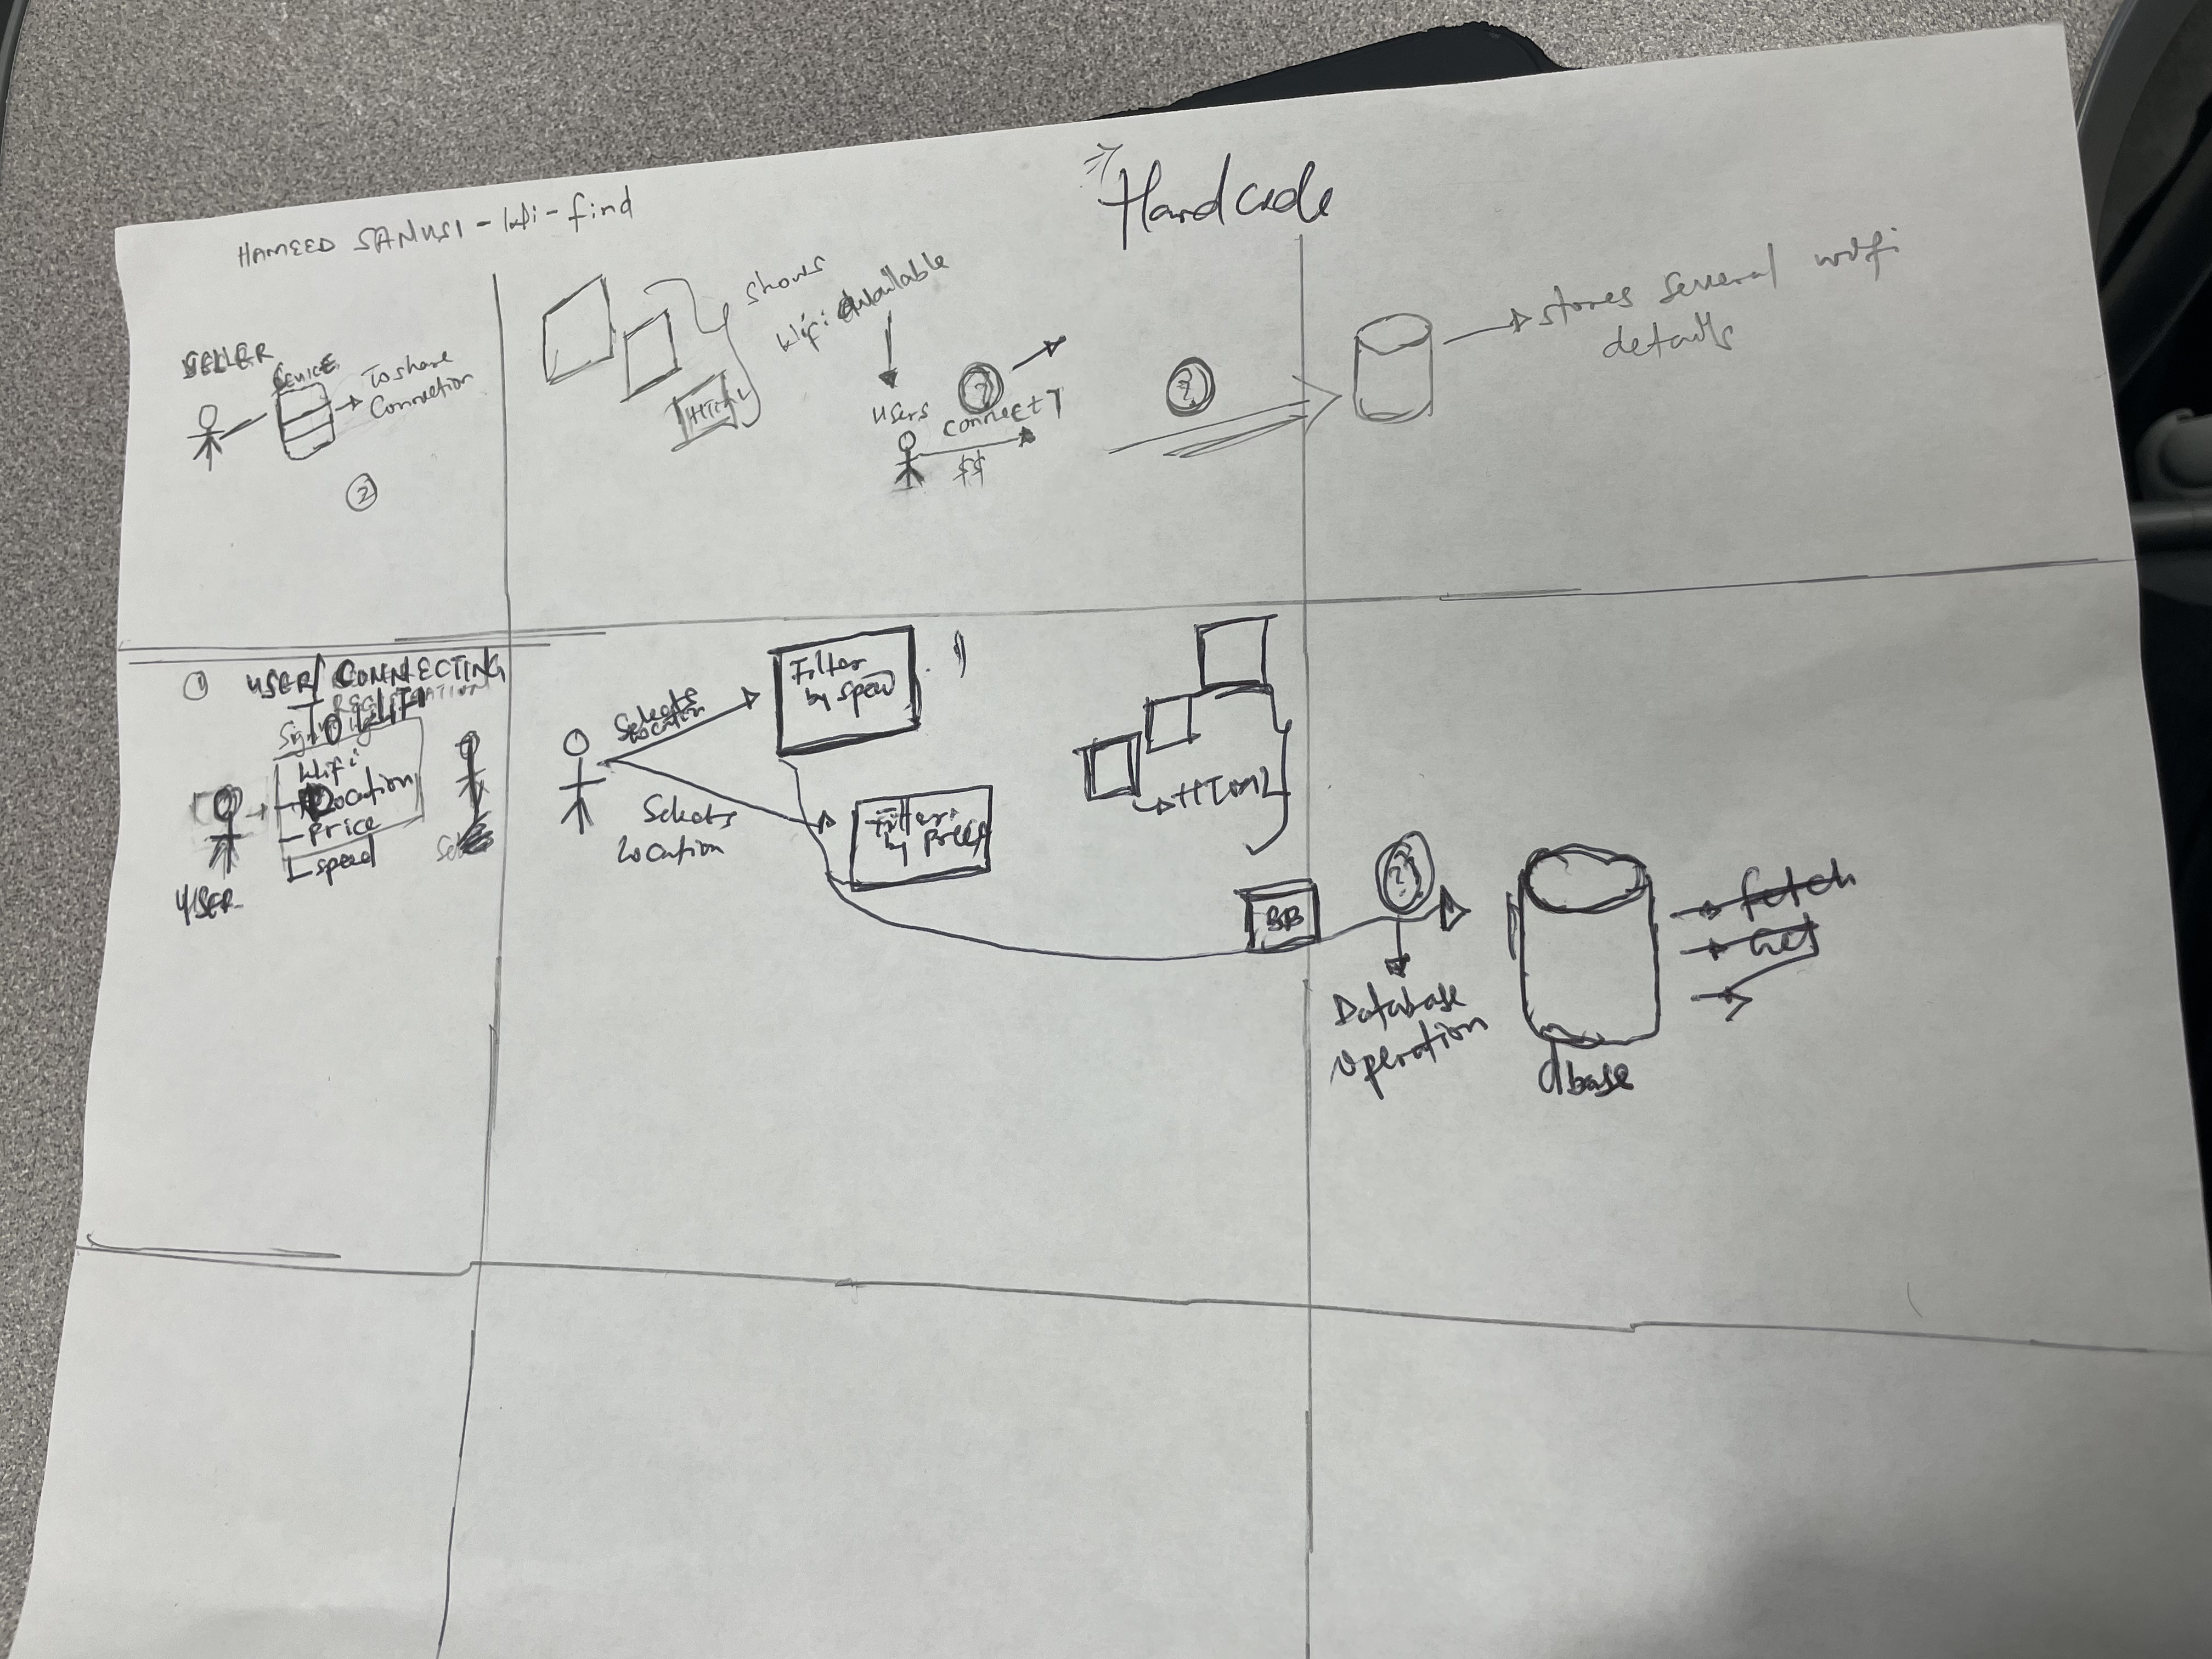 HAMEED SANUSI - Wi-find
Hardcode
SELLER
device
To share
Connection
2
shows
wifi available
users connect
$$
stores several wifi
details
1
USER/CONNECTING
wifi
Location
- price
- speed
USER
Selects
Location
Selects
Location
Filter
by speed
Filter
by price
HTML
DB
Database
operation
dbase
fetch
Get